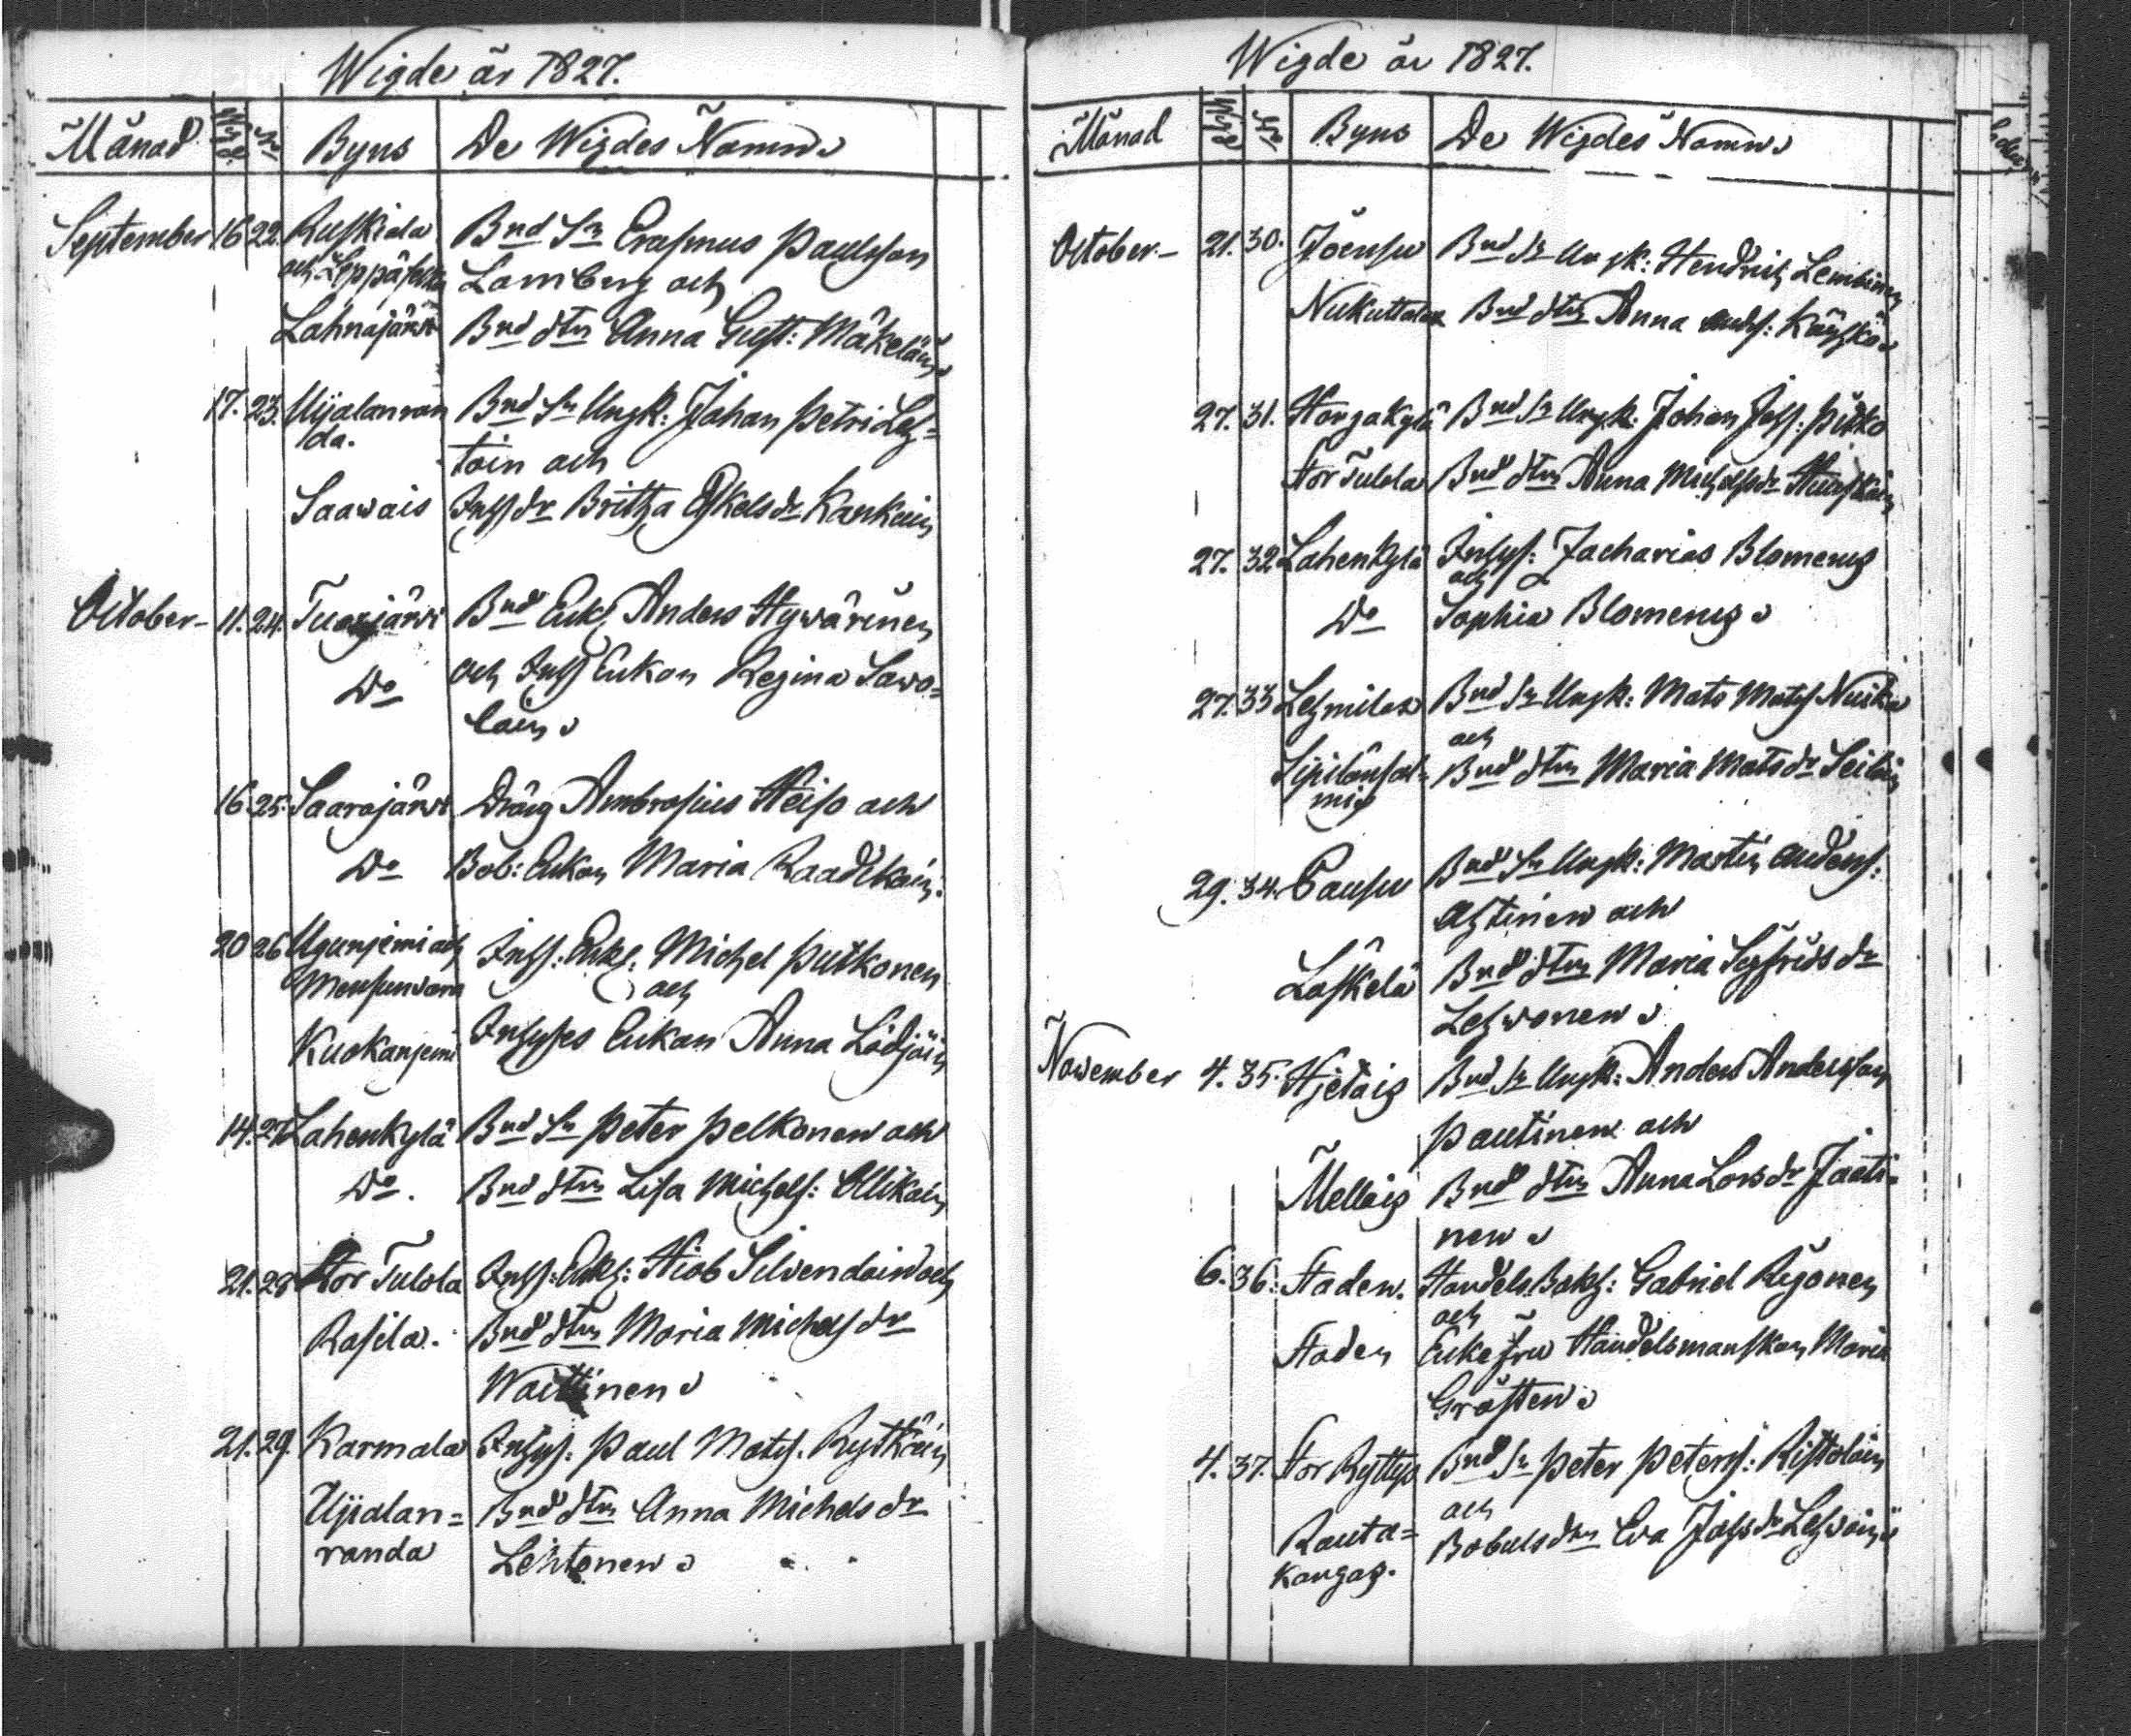 Wigde år 1827.
Månad Wigde No Byns De Wigdes Namn
September 16 22. Ruskiala Bnd Sn Erasmus Paulsson
och Leppäselkä Lamberg och
Lahnajärwi Bnd dtn Anna Gust: Mäkeläin
17. 23. Uijalanran Bnd Sn Ungk: Johan Petri Leh=
da. toin och
Saawais Inhs dr Britha Eskels dr Kankain
October – 11. 24. Bnd Enkl Anders Hywärinen
Do och Inhs Enkon Regina Sawo=
lain
16. 25. Saarajärwi Dräng Ambrosius Heiso och
Do Bob: Enkon Maria Raadikain.
20 26 Ugunjemi och Inhs: Enkl: Michel Putkonen
Mensunwara och
Kuokanjemi Inhyses Enkan Anna Lödjöin
14. 27. Lahenkylä Bnd Sn Peter Pelkonen och
Do. Bnd dtn Lisa Michels: Ollikain
21. 28 Stor Tulola Inhs: Enkl: Hiob Silvendoin och
Rasila. Bnd dtn Maria Michels dr
Waittinen
21. 29. Karmala Inhys: Paul Mats. Rytkäin
Uijalan= Bnd dtn Anna Michels dr
randa Lehtonen
Wigde år 1827.
Månad Wigde No Byns De Wigdes Namn
October – 21. 30. Joensu Bnd Sn Ungk: Hendrich Lembinen
Nukuttala Bnd dtn Anna Anders: Käyhkö
27. 31. Horgakylä Bnd Sn Ungk: Johan Johs: Pikko
Stor Tulola Bnd dtn Anna Michelsdr
27. 32 Lahenkylä Inhys: Zacharias Blomerus
och
Do Sophia Blomerus
27. 33 Lehmilax Bnd Sn Ungk: Mats Mats Nuika
och
Sipilänsal= Bnd dtn Maria Mats dr Seiläin
mis
29. 34. Pausu Bnd Sn Ungk: Martin Anders:
Ahtinen och
Läskelä Bnd dtn Maria Sigfrids dr
Lehwonen
November 4. 35. Hjetais Bnd Sn Ungk: Anders Andersson
Pautinen och
Mellois Bnd dtn Anna Lars dr Jaati=
nen
6. 36. Staden. Handels Bokh: Gabriel Rijonen
och
Staden Enke fru Handelsmanskan Maria
Grästen
4. 37. Stor Ryttyo Bnd Sn Peter Peters: Ristolain
och
Rauta= Bobuls dtn Eva Johs dr Lehwoin
kangas.